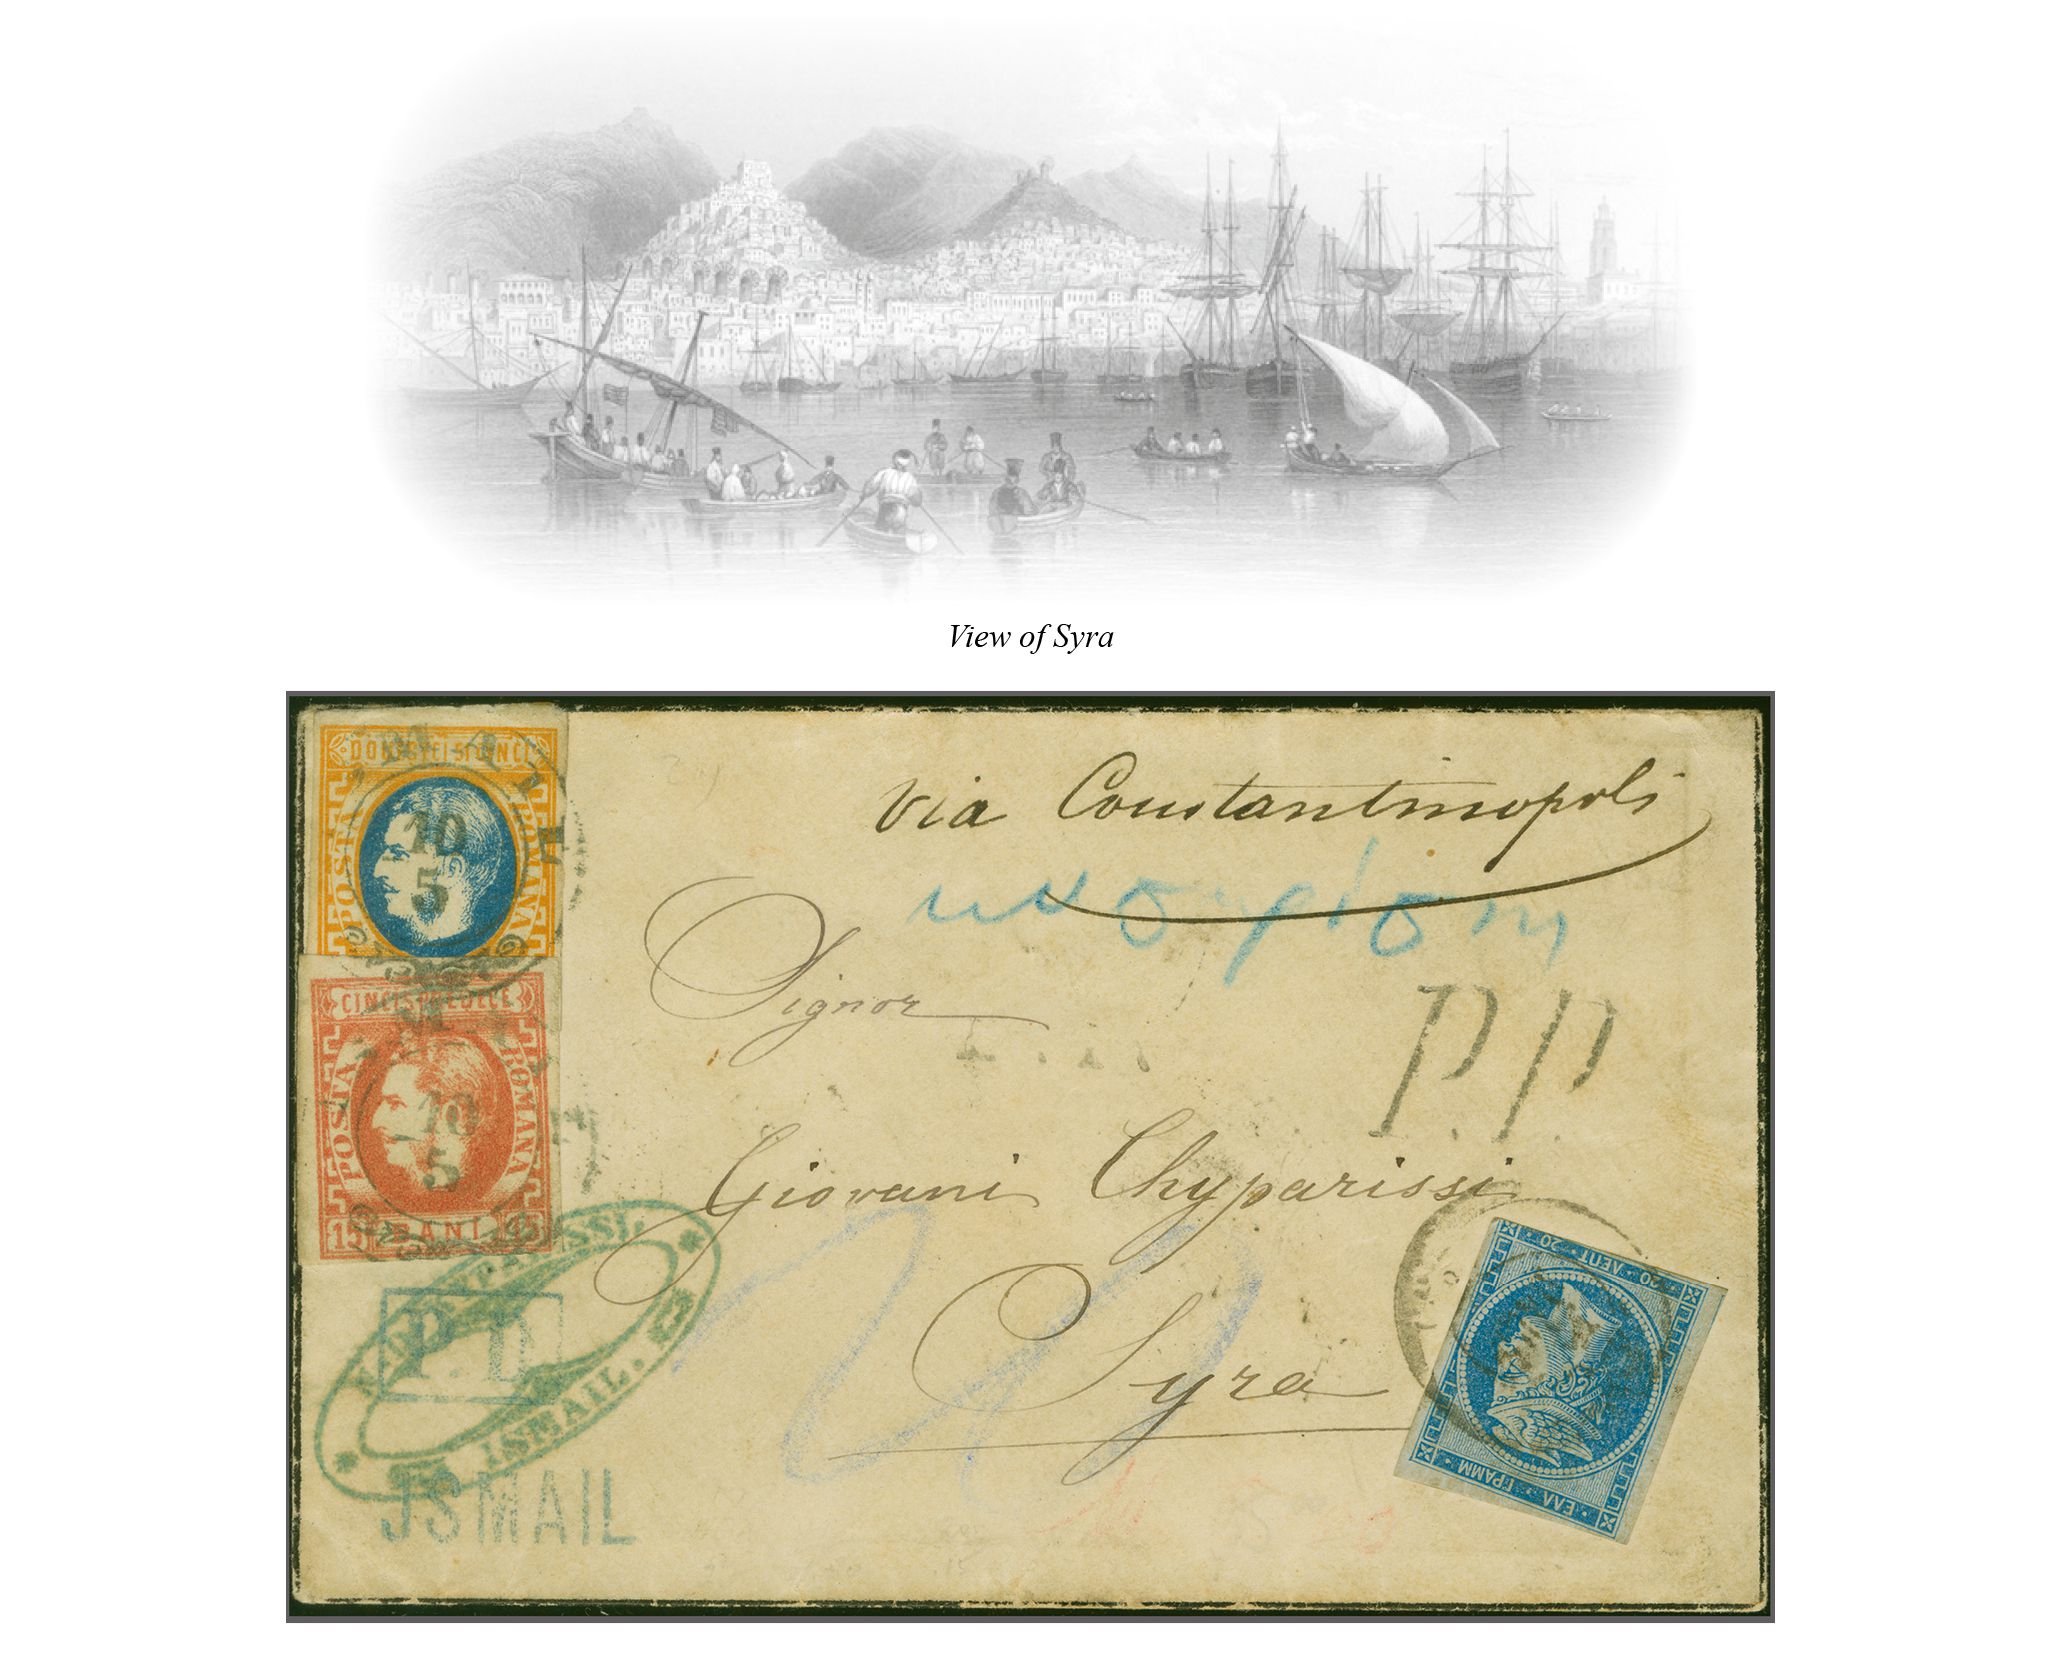 View of Syra
via Constantinopoli
Signor
P.P.
Giovani Chyparissi
Syra
POSTA ROMANA
10
5
CINCISPREDECE
POSTA ROMANA
10
5
15 BANI 15
ISMAIL.
P.D.
JSMAIL
20 · ΛΕΠΤ · 20
ΕΛΛ · ΓΡΑΜΜ